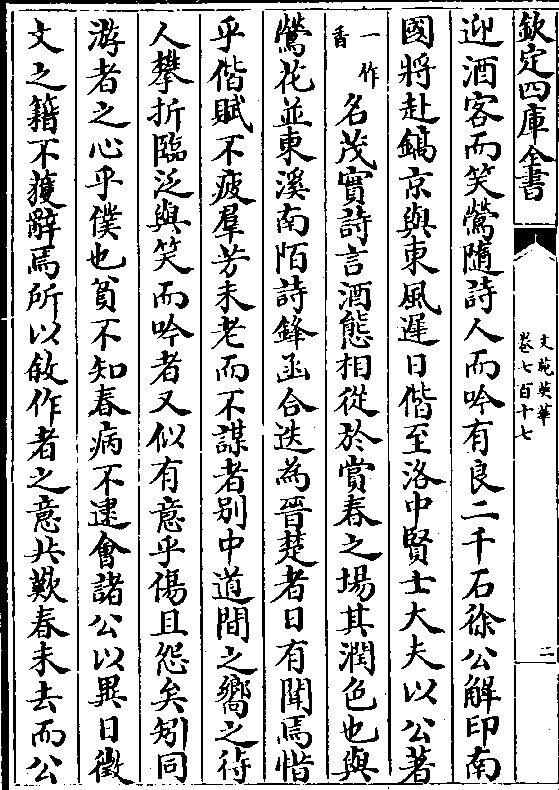 欽定四庫全書
文苑英華
卷七百十七
二
迎酒客而笑鶯隨詩人而吟有良二千石徐公解印南
國將赴鎬京與東風遲日偕至洛中賢士大夫以公著
一作香名茂實詩言酒態相從於賞春之場其潤色也與
鶯花並東溪南陌詩鋒函合迭為晉楚者日有聞焉惜
乎偕賦不疲羣芳未老而不謀者别中道間之嚮之待
人攀折臨泛與笑而吟者又似有意乎傷且怨矣矧同
游者之心乎僕也貧不知春病不逮會諸公以異日徵
文之籍不獲辭焉所以敘作者之意共歎春未去而公